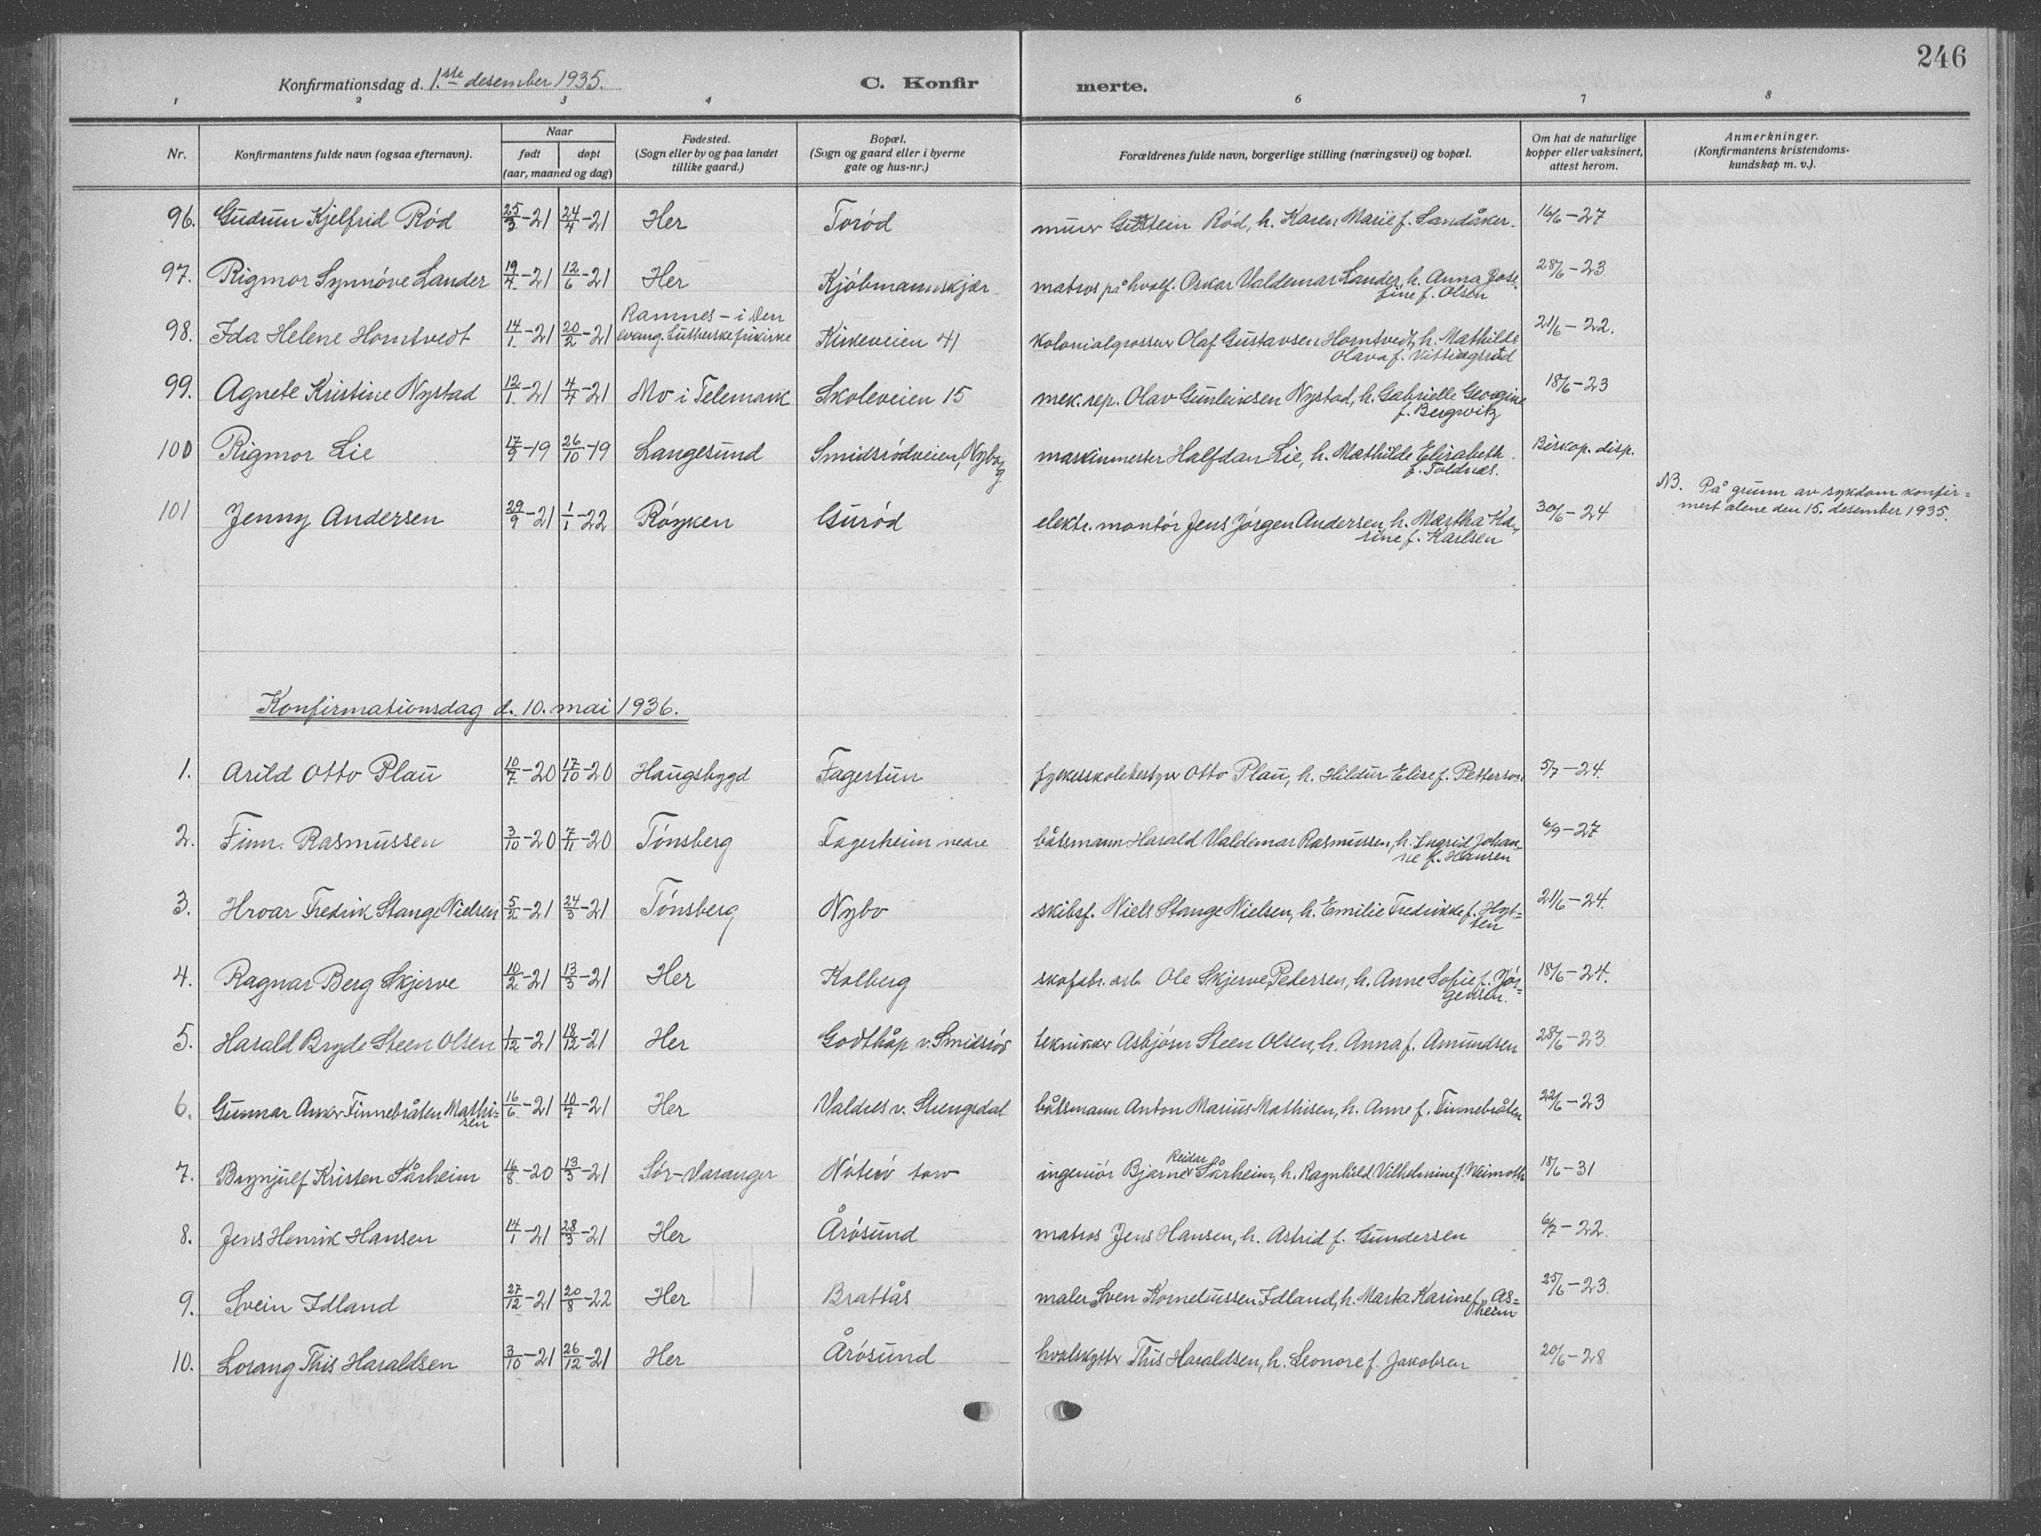 246
Konfirmationsdag d. 1.ste desember 1935.
C. Konfirmerte.
1 2 3 4 6 7 8
Nr. Konfirmantens fulde navn (ogsaa efternavn). Naar født døpt (aar, maaned og dag) Fødested. (Sogn eller by og paa landet tillike gaard.) Bopæl. (Sogn og gaard eller i byerne gate og hus-nr.) Forældrenes fulde navn, borgerlige stilling (næringsvei) og bopæl. Om hat de naturlige kopper eller vaksinert, attest herom. Anmerkninger. (Konfirmantens kristendoms-kundskap m. v.).
96. Gudrun Kjelfrid Rød 25/3-21 24/4-21 Her Torød murer Gutstein Rød, h. Karen Marie f. Sandåker. 16/6-27
97. Rigmor Synnøve Lander 19/4-21 12/6-21 Her Kjøbmannskjær matros på hvalf. Oskar Valdemar Lander, h. Anna Jose-
fine f. Olsen 28/6-23
98. Ida Helene Homtvedt 14/1-21 20/2-21 Ramnes - i den
evang. Lutherske frikirke Kirkeveien 41 kolonialgrosser Olaf Gustavsen Homtvedt, h. Mathilde
Olava f. Vittingsrud 21/6-22.
99. Agnete Kristine Nystad 12/1-21 4/4-21 Mo i Telemark Skoleveien 15 mek. rep. Olav Gunleiksen Nystad, h. Gabrielle Georgine
f. Bergwitz 18/6-23
100 Rigmor Lie 17/9-19 26/10-19 Langesund Smidsrødveien, Nyborg maskinmester Halfdan Lie, h. Mathilde Elisabeth
f. Toldnes. Biskop. disp.
101 Jenny Andersen 29/9-21 1/1-22 Røyken Gurød elektr. montør Jens Jørgen Andersen, h. Martha Ka-
rine f. Karlsen 30/6-24 NB. På grunn av sykdom konfir=
mert alene den 15. desember 1935.
Konfirmationsdag d. 10. mai 1936.
1. Arild Otto Plau 10/7-20 17/10-20 Haugsbygd Fagertun Otto Plau, h. Hildur Elise f. Petterson 5/7-24.
2. Finn Rasmussen 3/10-20 7/11-20 Tønsberg Fagerheim nedre båtsmann Harald Valdemar Rasmussen, h. Ingrid Johan-
ne f. Hansen 6/9-27
3. Hroar Fredrik Stange Nielsen 5/2-21 24/3-21 Tønsberg Nybo skibsf. Niels Stange Nielsen, h. Emilie Fredrikke f. Hyt=
ten 21/6-24.
4. Ragnar Berg Skjerve 10/2-21 13/3-21 Her Kolberg skofabr. arb. Ole Skjerve Pedersen, h. Anne Sofie f. Jør=
gensen. 18/6-24.
5. Harald Bryde Steen Olsen 1/12-21 18/12-21 Her Godthåp v. Smidsrød tekniker Asbjørn Steen Olsen, h. Anna f. Amundsen 28/6-23
6. Gunnar Anker Finnebråten Mathi=
sen 16/6-21 10/7-21 Her Valdres v. Strengsdal båtsmann Anton Marius Mathisen, h. Anne f. Finnebråten 22/6-23
7. Brynjulf Kristen Sårheim 16/8-20 13/3-21 Sør-Varanger Nøterø torv ingeniør Bjarne Reidar Sårheim, h. Ragnhild Vilhelmine f. Weimoth 18/6-31
8. Jens Henrik Hansen 14/1-21 28/3-21 Her Årøsund matros Jens Hansen, h. Astrid f. Gundersen 6/7-22.
9. Svein Idland 27/12-21 20/8-22 Her Brattås maler Sven Korneliussen Idland, h. Marta Karine f. As=
heim 25/6-23.
10. Lorang This Haraldsen 3/10-21 26/12-21 Her Årøsund hvalskytter This Haraldsen, h. Leonore f. Jakobsen 20/6-28